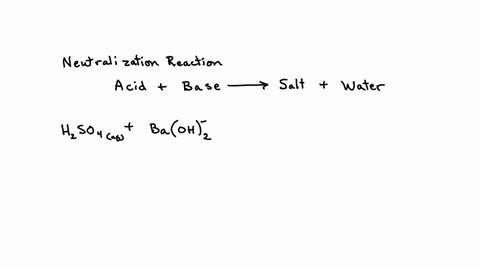 Neutralization Reaction
Acid + Base ⟶ Salt + Water
H₂SO₄(aq) + Ba(OH)₂⁻